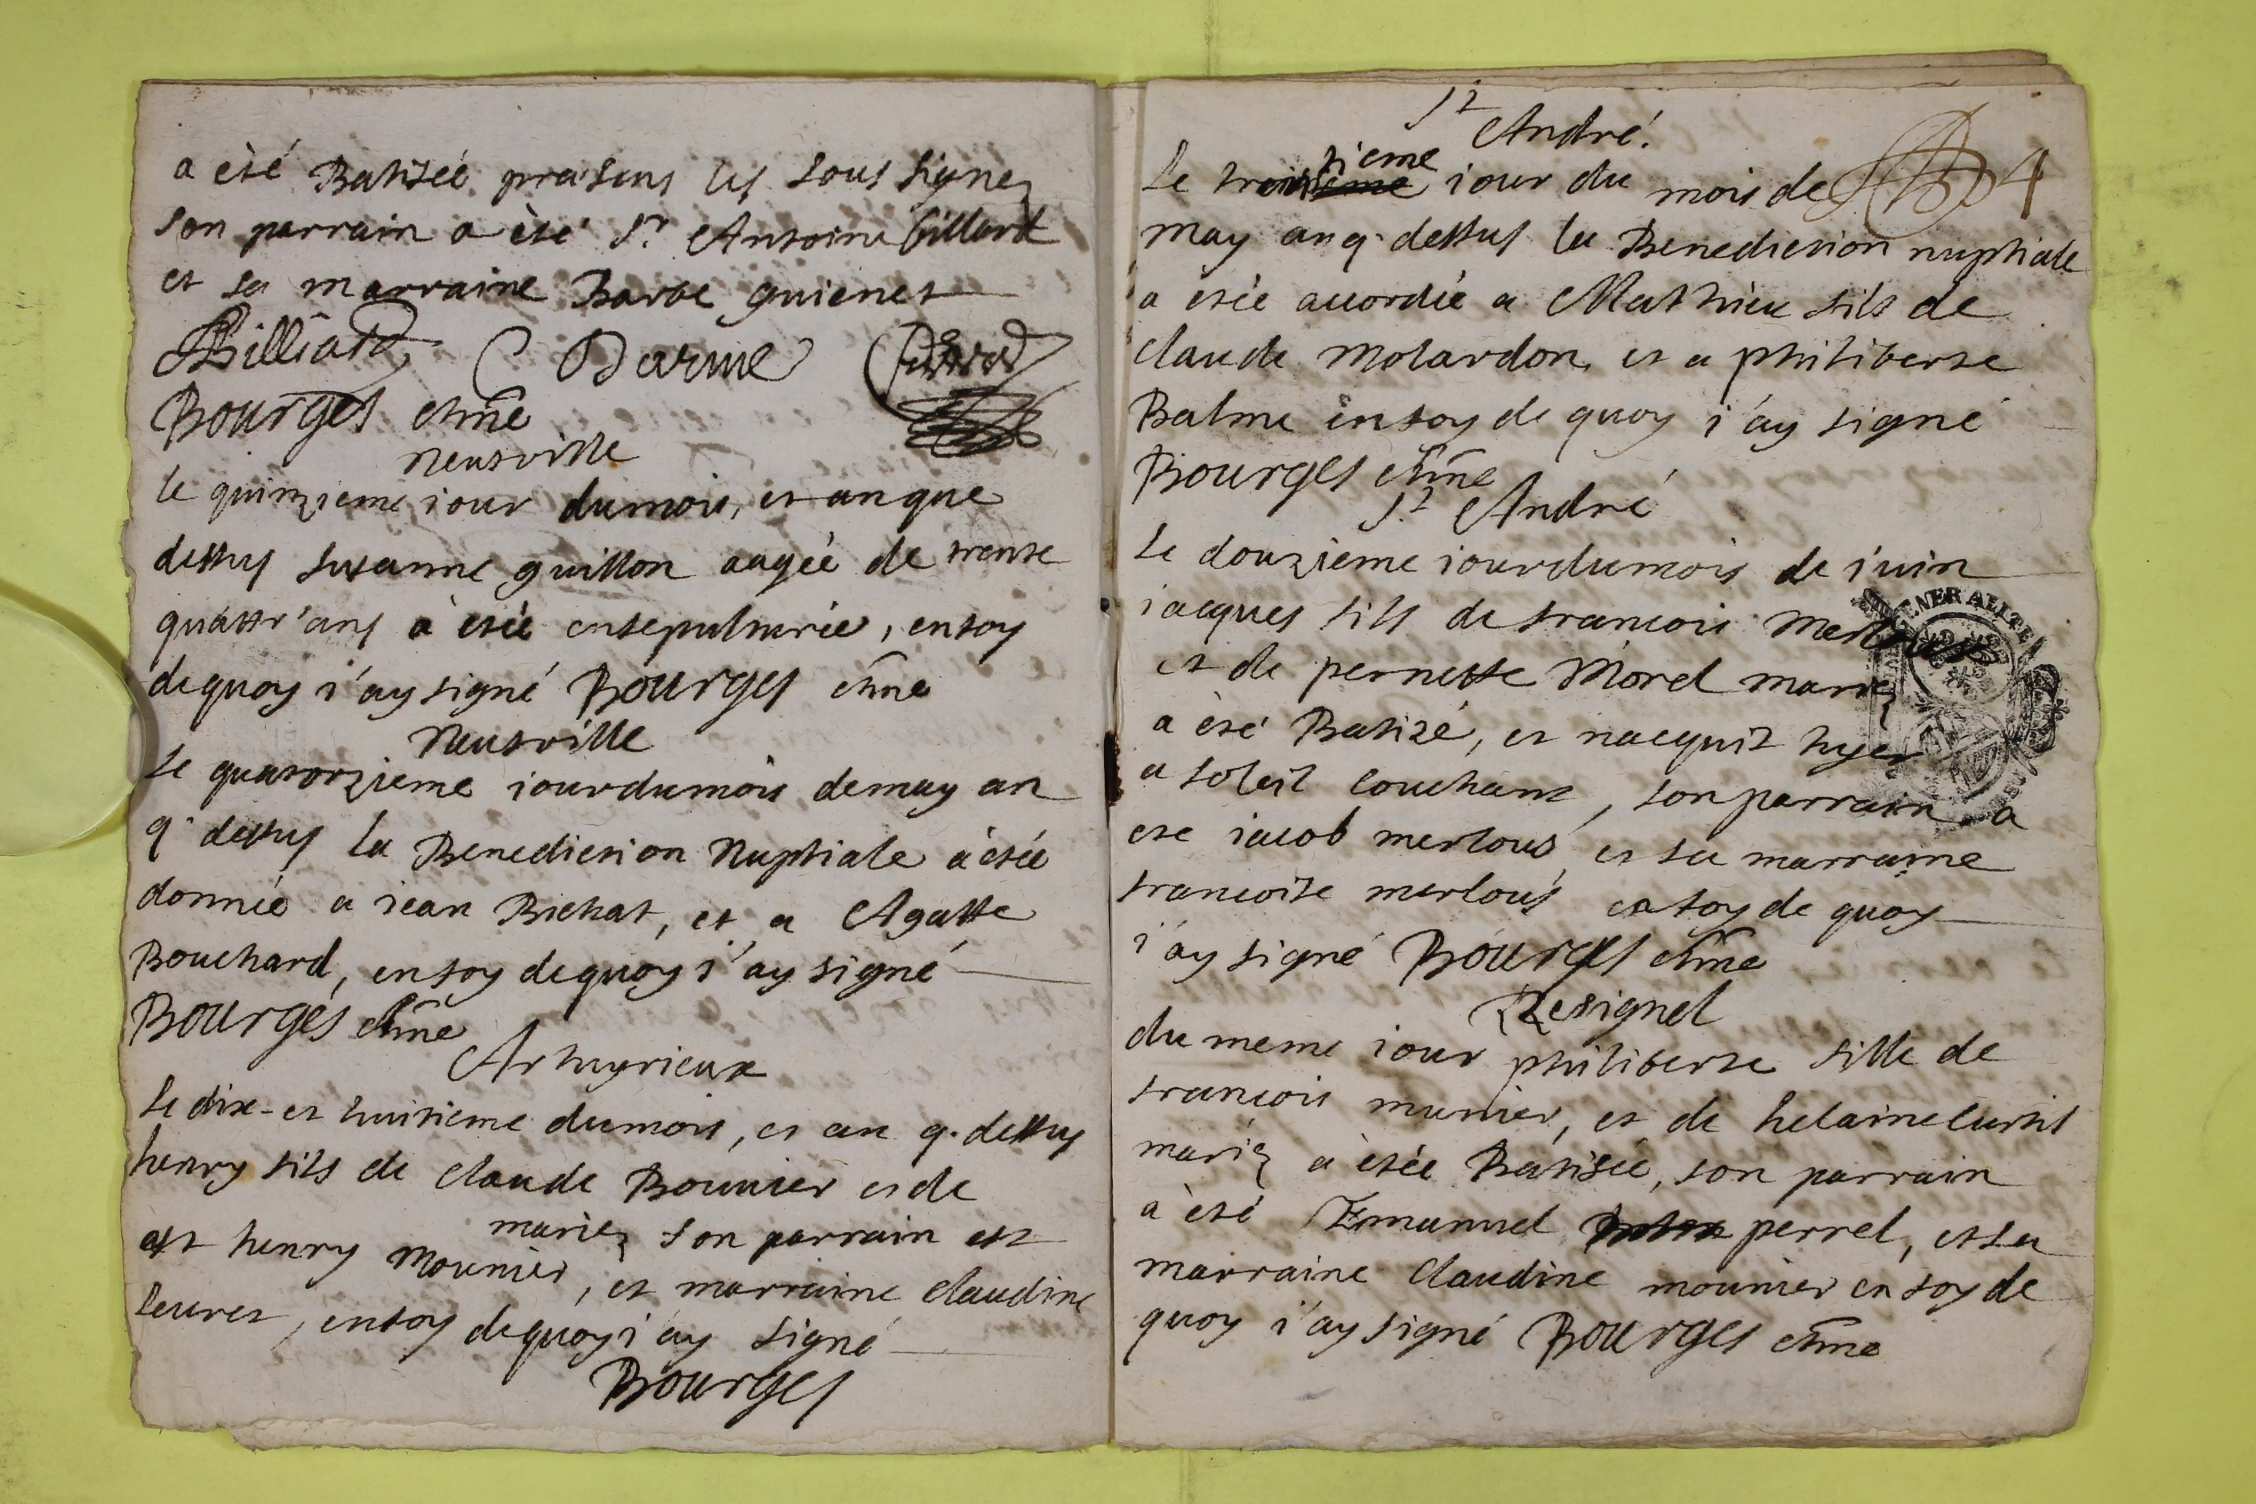 a èté Batiséé presens les sous signez
son parrain a èté Sr. Antoine Billard
et sa marraine Barbe guienet
Billiard C Darme
Bourges chñe
Neufville
le quinzieme iour du mois, et an que
dessus susanne guillon aagéé de trente
quattr'ans à etéé ensepulturéé, en foy
de quoy i'ay signé Bourges chñe
Neufville
le quatorzieme iour du mois de may an
q. dessus la Benediction Nuptiale à étéé
donnéé a iean Bichat, et a Agatte
Bouchard, en foy de quoy i'ay signé
Bourges chñe
Arhuyrieux
le dix-et huitieme du mois, et an q. dessus
henry fils de Claude Bounier et de
mariez son parrain est
est henry Mounier, et marraine Claudine
feuret, en foy de quoy i'ay signé
Bourges
St André.
4
le trentieme iour du mois de
may an q. dessus la Benediction nuptiale
a étéé accordéé a Mathieu fils de
Claude Molardon et a philiberte
Balme en foy de quoy i'ay signé
Bourges chñe
St André
le douzieme iour du mois de iuin
iacques fils de francois
et de pernette Morel mariez
a été Batizé, et nacquit hyer
a soleil couchant, son parrain a
eté iacob merlous et sa marraine
francoise merlous en foy de quoy
i'ay signé Bourges chñe
Resignel
du meme iour philiberte fille de
francois munier, et de helaine curtil
mariez a étéé Batiséé, son parrain
a èté Emanuel perrel, et sa
marraine Claudine mounier en foy de
quoy i'ay signé Bourges chñe